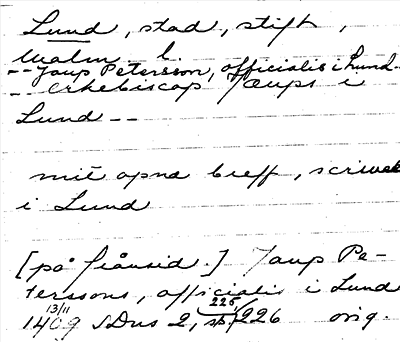 Lund, stad, stift,
Malm. l.
-- Jaup Petersson, officialis i Lund --
-- erkebiscop Jæups i
Lund --
mit opna breff, screuet
i Lund
[på frånsid.] Jaup Pe-
terssons, officialis i Lund
13/11 225
1409 SDns 2, s. 226 orig.